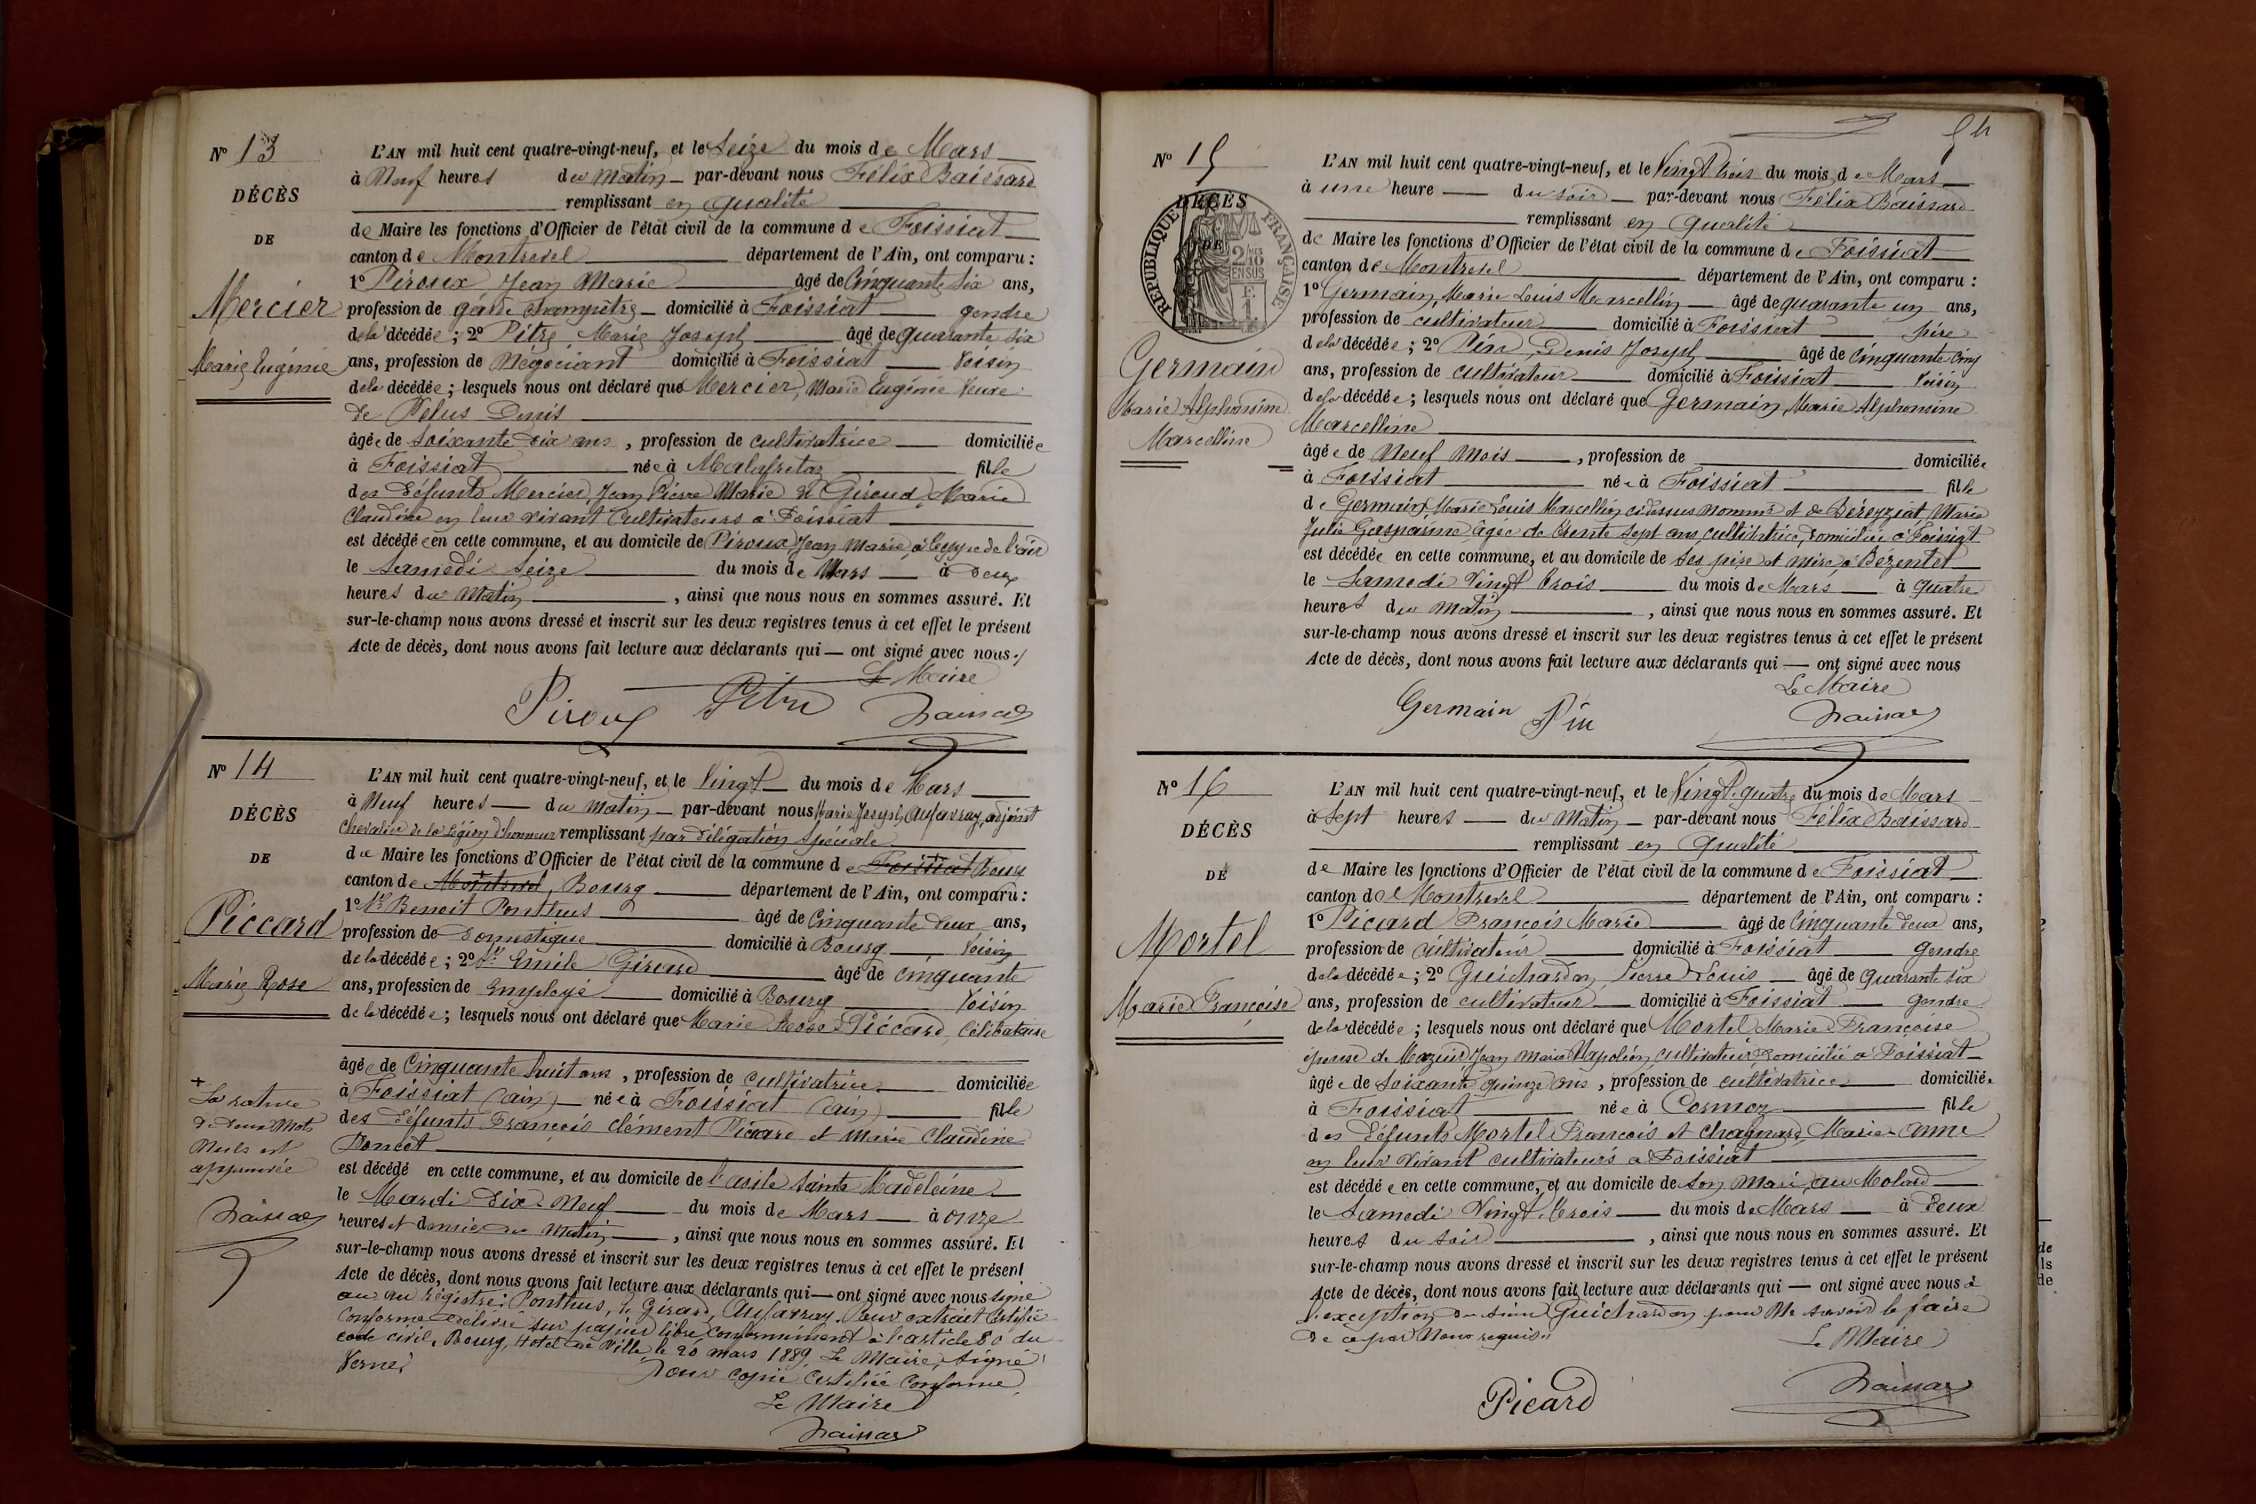 N° 13
DÉCÈS
DE
Mercier
Marie Eugénie
L'AN mil huit cent quatre-vingt-neuf, et le Seize du mois de Mars
à Neuf heures du Matin par-devant nous Félix Baissard
remplissant en qualité
de Maire les fonctions d'Officier de l'état civil de la commune de Foissiat
canton de Montrevel département de l'Ain, ont comparu :
1° Piroux Jean Marie âgé de Cinquante Six ans,
profession de garde champêtre domicilié à Foissiat gendre
de la décédée ; 2° Pitre Marie Joseph âgé de quarante six
ans, profession de Négociant domicilié à Foissiat Voisin
de la décédée ; lesquels nous ont déclaré que Mercier, Marie Eugénie Veuve
de Velus Denis
âgée de soixante dix ans, profession de cultivatrice domiciliée
à Foissiat née à Malafretaz fille
des défunts Mercier, Jean Pierre Marie et Giroud, Marie
Claudine en leur vivant Cultivateurs à Foissiat
est décédée en cette commune, et au domicile de Piroux Jean Marie, à
le Samedi Seize du mois de Mars à deux
heures du Matin, ainsi que nous nous en sommes assuré. Et
sur-le-champ nous avons dressé et inscrit sur les deux registres tenus à cet effet le présent
Acte de décès, dont nous avons fait lecture aux déclarants qui — ont signé avec nous./
Le Maire
Piroux Pitre Baissard
N° 14
DÉCÈS
DE
Piccard
Marie Rose
+
La rature
de deux Mots
Nuls est
approuvée
Baissard
L'AN mil huit cent quatre-vingt-neuf, et le Vingt du mois de Mars
à Neuf heures du Matin par-devant nous Marie Joseph Aufavray, adjoint
Chevalier de la Légion d'honneur remplissant par délégation Spéciale
du Maire les fonctions d'Officier de l'état civil de la commune de Foissiat Bourg
canton de Montrevel, Bourg département de l'Ain, ont comparu :
1° Sr Benoit Ponthus âgé de Cinquante deux ans,
profession de domestique domicilié à Bourg Voisin
de la décédée ; 2° Sr Emile Girard âgé de cinquante
ans, profession de Employé domicilié à Bourg Voisin
de la décédée ; lesquels nous ont déclaré que Marie Rose Piccard, Célibataire
âgée de Cinquante huit ans, profession de cultivatrice domiciliée
à Foissiat (Ain) née à Foissiat (Ain) fille
des défunts François Clément Picard et Marie Claudine
Poncet
est décédé en cette commune, et au domicile de l'asile Sainte Madeleine
le Mardi Dix-Neuf du mois de Mars à onze
heures et demie du Matin, ainsi que nous nous en sommes assuré. Et
sur-le-champ nous avons dressé et inscrit sur les deux registres tenus à cet effet le présent
Acte de décès, dont nous avons fait lecture aux déclarants qui — ont signé avec nous signé
au registre : Ponthus, Girard, Aufavray. Pour extrait Certifié
Conforme délivré sur papier libre, conformément à l'article 80 du
code civil. Bourg, Hotel de Ville le 20 mars 1889, Le Maire, Signé
Verne.
Pour copie Certifiée Conforme,
Le Maire
Baissard
54
N° 15
DÉCÈS
DE
RÉPUBLIQUE FRANÇAISE
2/10
EN SUS
1 F.
Germain
Marie Alphonsine
Marcelline
L'AN mil huit cent quatre-vingt-neuf, et le Vingt trois du mois de Mars
à une heure du soir par-devant nous Félix Baissard
remplissant en qualité
de Maire les fonctions d'Officier de l'état civil de la commune de Foissiat
canton de Montrevel département de l'Ain, ont comparu :
1° Germain, Marie Louis Marcellin âgé de quarante un ans,
profession de cultivateur domicilié à Foissiat père
de la décédée ; 2° Pin, Denis Joseph âgé de cinquante cinq
ans, profession de cultivateur domicilié à Foissiat Voisin
de la décédée ; lesquels nous ont déclaré que Germain, Marie Alphonsine
Marcelline
âgée de Neuf Mois, profession de domiciliée
à Foissiat née à Foissiat fille
de Germain, Marie Louis Marcellin ci dessus nommé et de Béreyziat Marie
Julie Gasparine, âgée de trente sept ans, cultivatrice, domiciliée à Foissiat
est décédée en cette commune, et au domicile de ses père et mère, à Bézentet
le Samedi Vingt trois du mois de Mars à quatre
heures du Matin, ainsi que nous nous en sommes assuré. Et
sur-le-champ nous avons dressé et inscrit sur les deux registres tenus à cet effet le présent
Acte de décès, dont nous avons fait lecture aux déclarants qui — ont signé avec nous
Le Maire
Germain Pin Baissard
N° 16
DÉCÈS
DE
Mortel
Marie Françoise
L'AN mil huit cent quatre-vingt-neuf, et le Vingt-quatre du mois de Mars
à Sept heures du Matin par-devant nous Félix Baissard
remplissant en qualité
de Maire les fonctions d'Officier de l'état civil de la commune de Foissiat
canton de Montrevel département de l'Ain, ont comparu :
1° Picard François Marie âgé de Cinquante deux ans,
profession de cultivateur domicilié à Foissiat gendre
de la décédée ; 2° Guichardon, Pierre Louis âgé de quarante six
ans, profession de cultivateur domicilié à Foissiat gendre
de la décédée ; lesquels nous ont déclaré que Mortel Marie Françoise
épouse de Mazuir Jean Marie Napoléon, cultivateur domicilié à Foissiat
âgée de soixante quinze ans, profession de cultivatrice domiciliée
à Foissiat née à Cormoz fille
des défunts Mortel François et Chagnard, Marie-Anne
en leur vivant cultivateurs à Foissiat
est décédée en cette commune, et au domicile de son Mari, au Molard
le Samedi Vingt-trois du mois de Mars à deux
heures du soir, ainsi que nous nous en sommes assuré. Et
sur-le-champ nous avons dressé et inscrit sur les deux registres tenus à cet effet le présent
Acte de décès, dont nous avons fait lecture aux déclarants qui — ont signé avec nous à
l'exception du sieur Guichardon pour Ne savoir le faire
de ce par Nous requis./
Le Maire
Picard Baissard